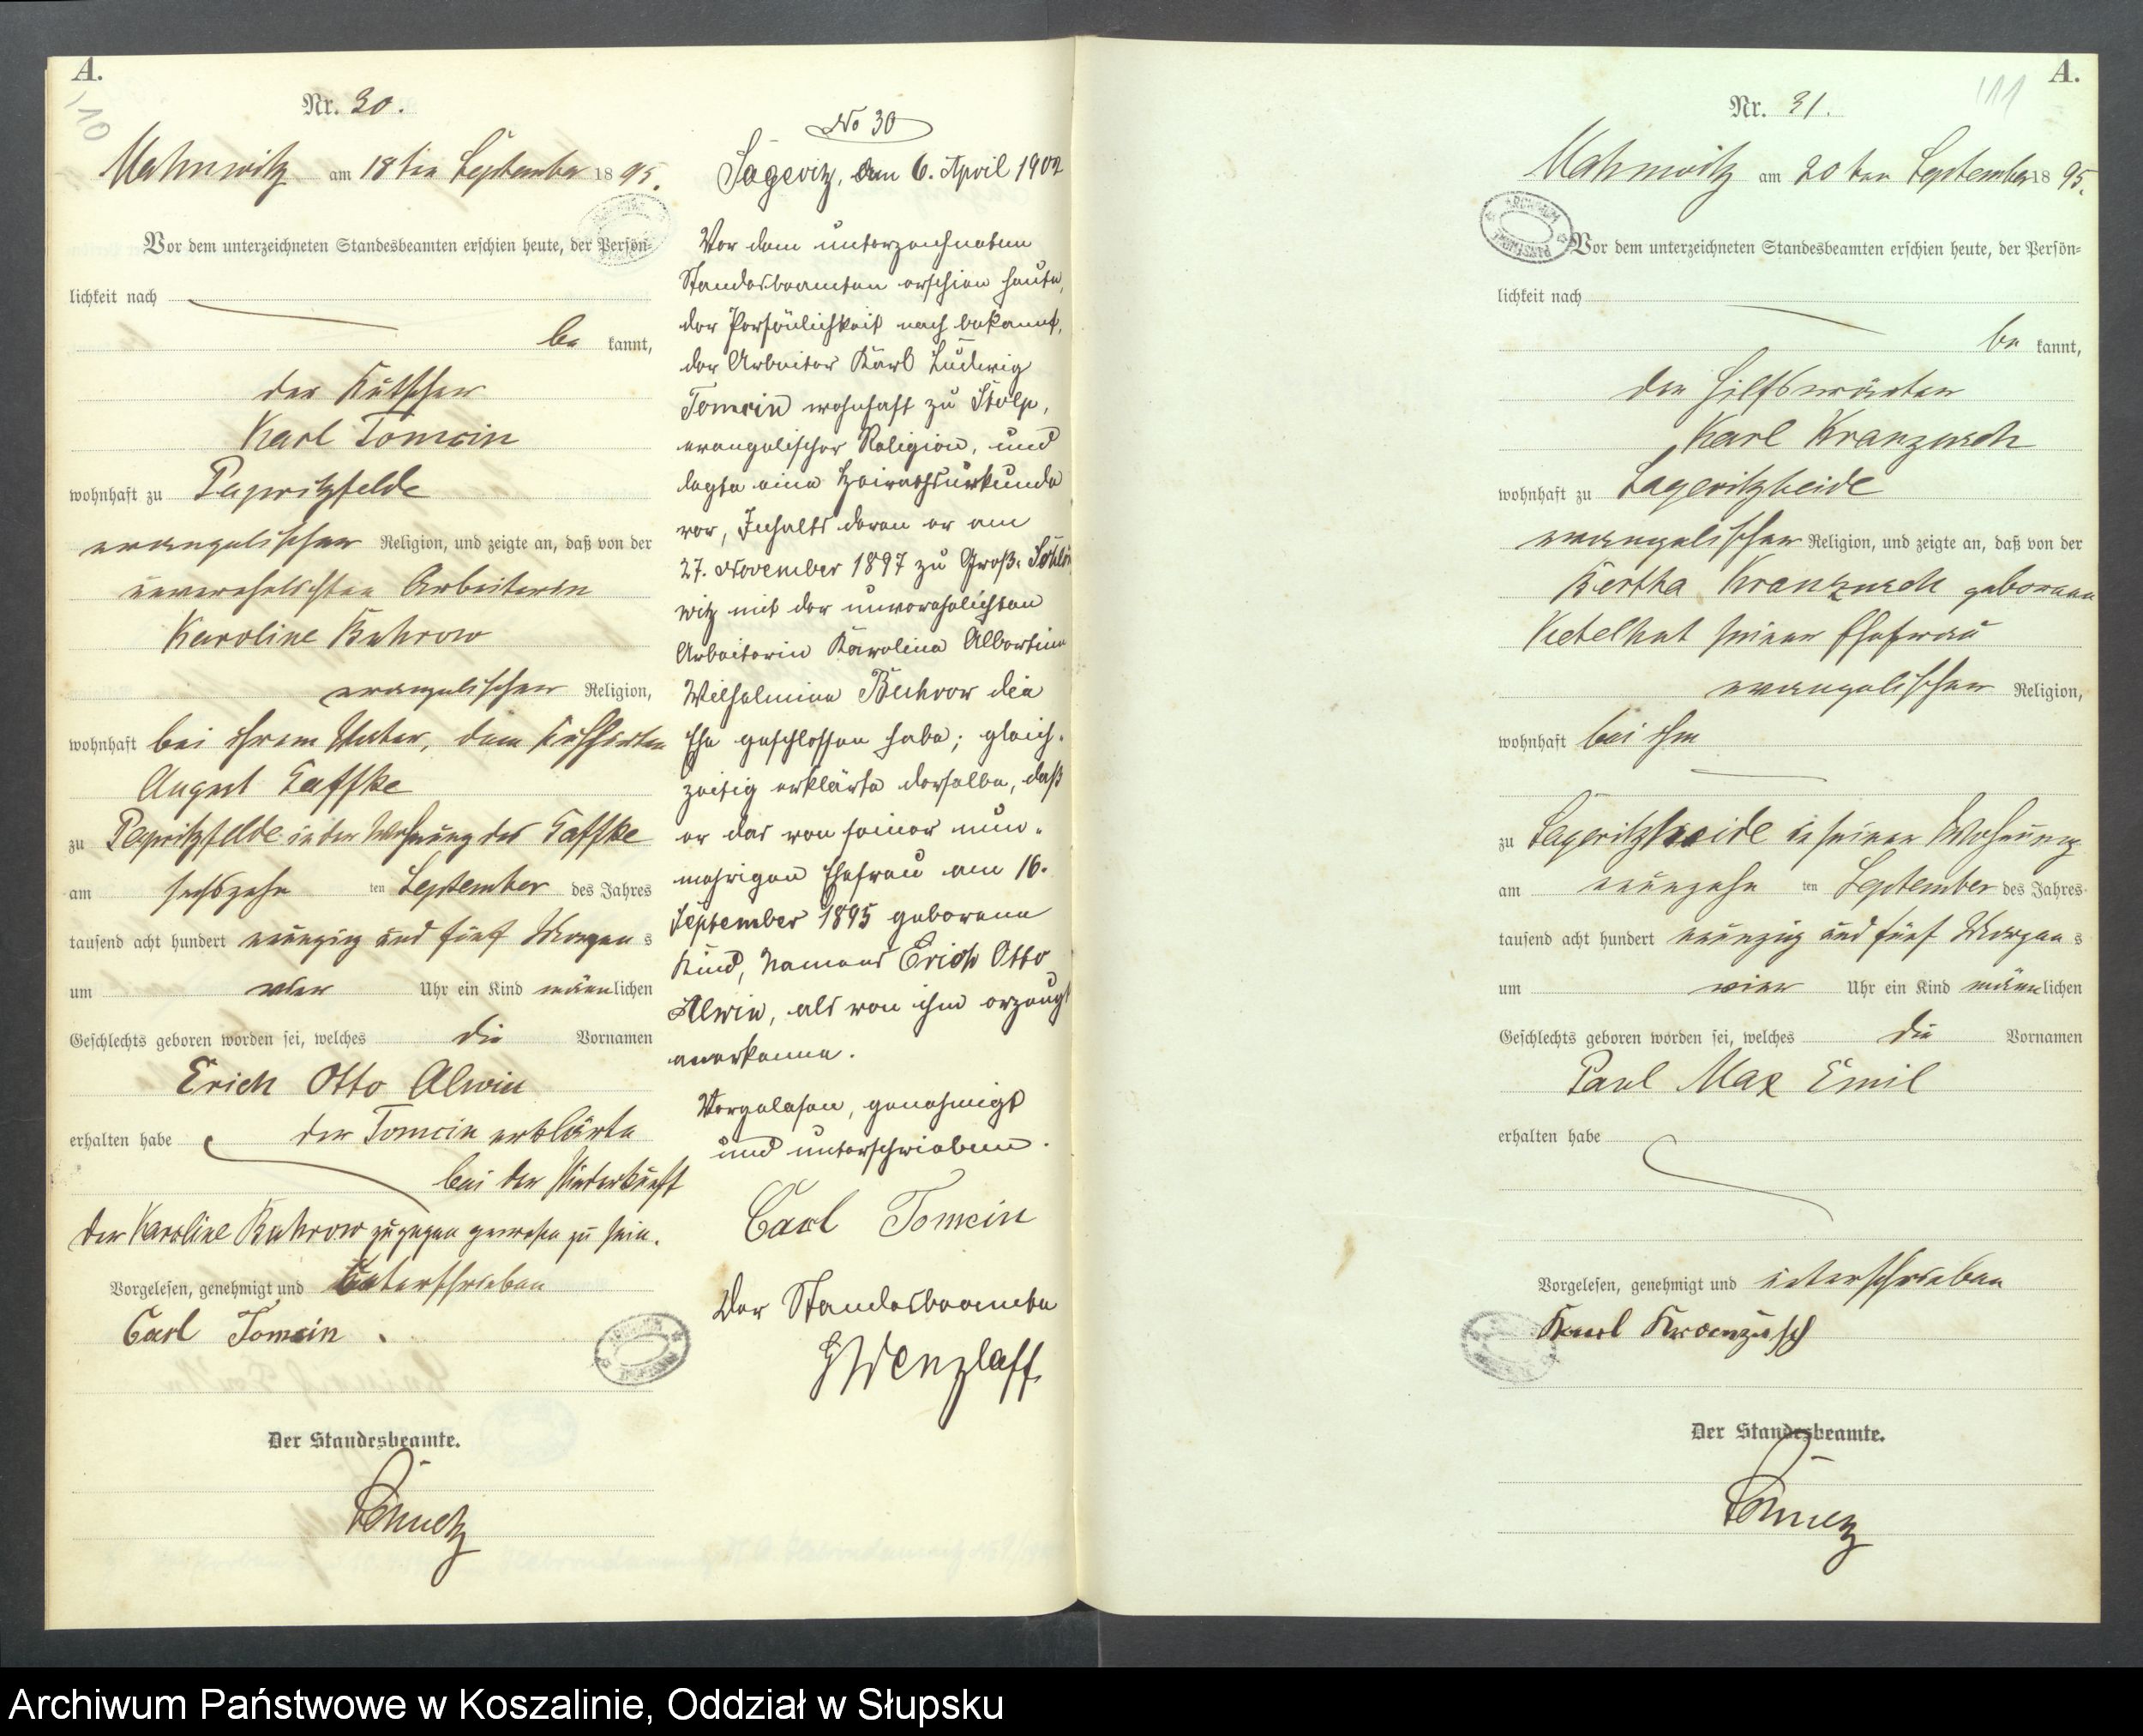 A.
110
Nr. 30.
Mahnwitz am 18ten September 1895.
Vor dem unterzeichneten Standesbeamten erschien heute, der Persön-
lichkeit nach
be kannt,
der Kutscher
Karl Tomcin
wohnhaft zu Papritzfelde
evangelischer Religion, und zeigte an, daß von der
unverehelichten Arbeiterin
Karoline Buhrow
evangelischer Religion,
wohnhaft bei ihrem Vater, dem Kuhhirten
August
zu Papritzfelde in der Wohnung des
am sechszehn ten September des Jahres
tausend acht hundert neunzig und fünf Morgens
um vier Uhr ein Kind männlichen
Geschlechts geboren worden sei, welches die Vornamen
Erich Otto Alwin
erhalten habe der Tomcin erklärte
bei der Niederkunft
der Karoline Buhrow zugegen gewesen zu sein.
Vorgelesen, genehmigt und unterschrieben
Carl Tomcin.
Der Standesbeamte.
No 30
Sageritz, den 6. April 1902
Vor dem unterzeichneten
Standesbeamten erschien heute,
der Persönlichkeit nach bekannt,
der Arbeiter Karl Ludwig
Tomcin wohnhaft zu Stolp,
evangelischer Religion, und
legte eine Heirathsurkunde
vor, Inhalts deren er am
27. November 1897 zu Groß-
witz mit der unverehelichten
Arbeiterin Karoline Albertine
Wilhelmine Buhrow die
Ehe geschlossen habe; gleich-
zeitig erklärte derselbe, daß
er das von seiner nun-
mehrigen Ehefrau am 16.
September 1895 geborene
Kind, Namens Erich Otto
Alwin, als von ihm erzeugt
anerkenne.
Vorgelesen, genehmigt
und unterschrieben.
Carl Tomcin
Der Standesbeamte
Wenzlaff
A.
111
Nr. 31.
Mahnwitz am 20ten September 1895.
Vor dem unterzeichneten Standesbeamten erschien heute, der Persön-
lichkeit nach
be kannt,
der Hilfswärter
Karl Kranzusch
wohnhaft zu Sageritzheide
evangelischer Religion, und zeigte an, daß von der
Bertha Kranzusch geborenen
Ketelhut seiner Ehefrau
evangelischer Religion,
wohnhaft bei ihm
zu Sageritzheide in seiner Wohnung
am neunzehn ten September des Jahres
tausend acht hundert neunzig und fünf Morgens
um vier Uhr ein Kind männlichen
Geschlechts geboren worden sei, welches die Vornamen
Paul Max Emil
erhalten habe
Vorgelesen, genehmigt und unterschrieben
Karl Kranzusch
Der Standesbeamte.
Archiwum Państwowe w Koszalinie, Oddział w Słupsku